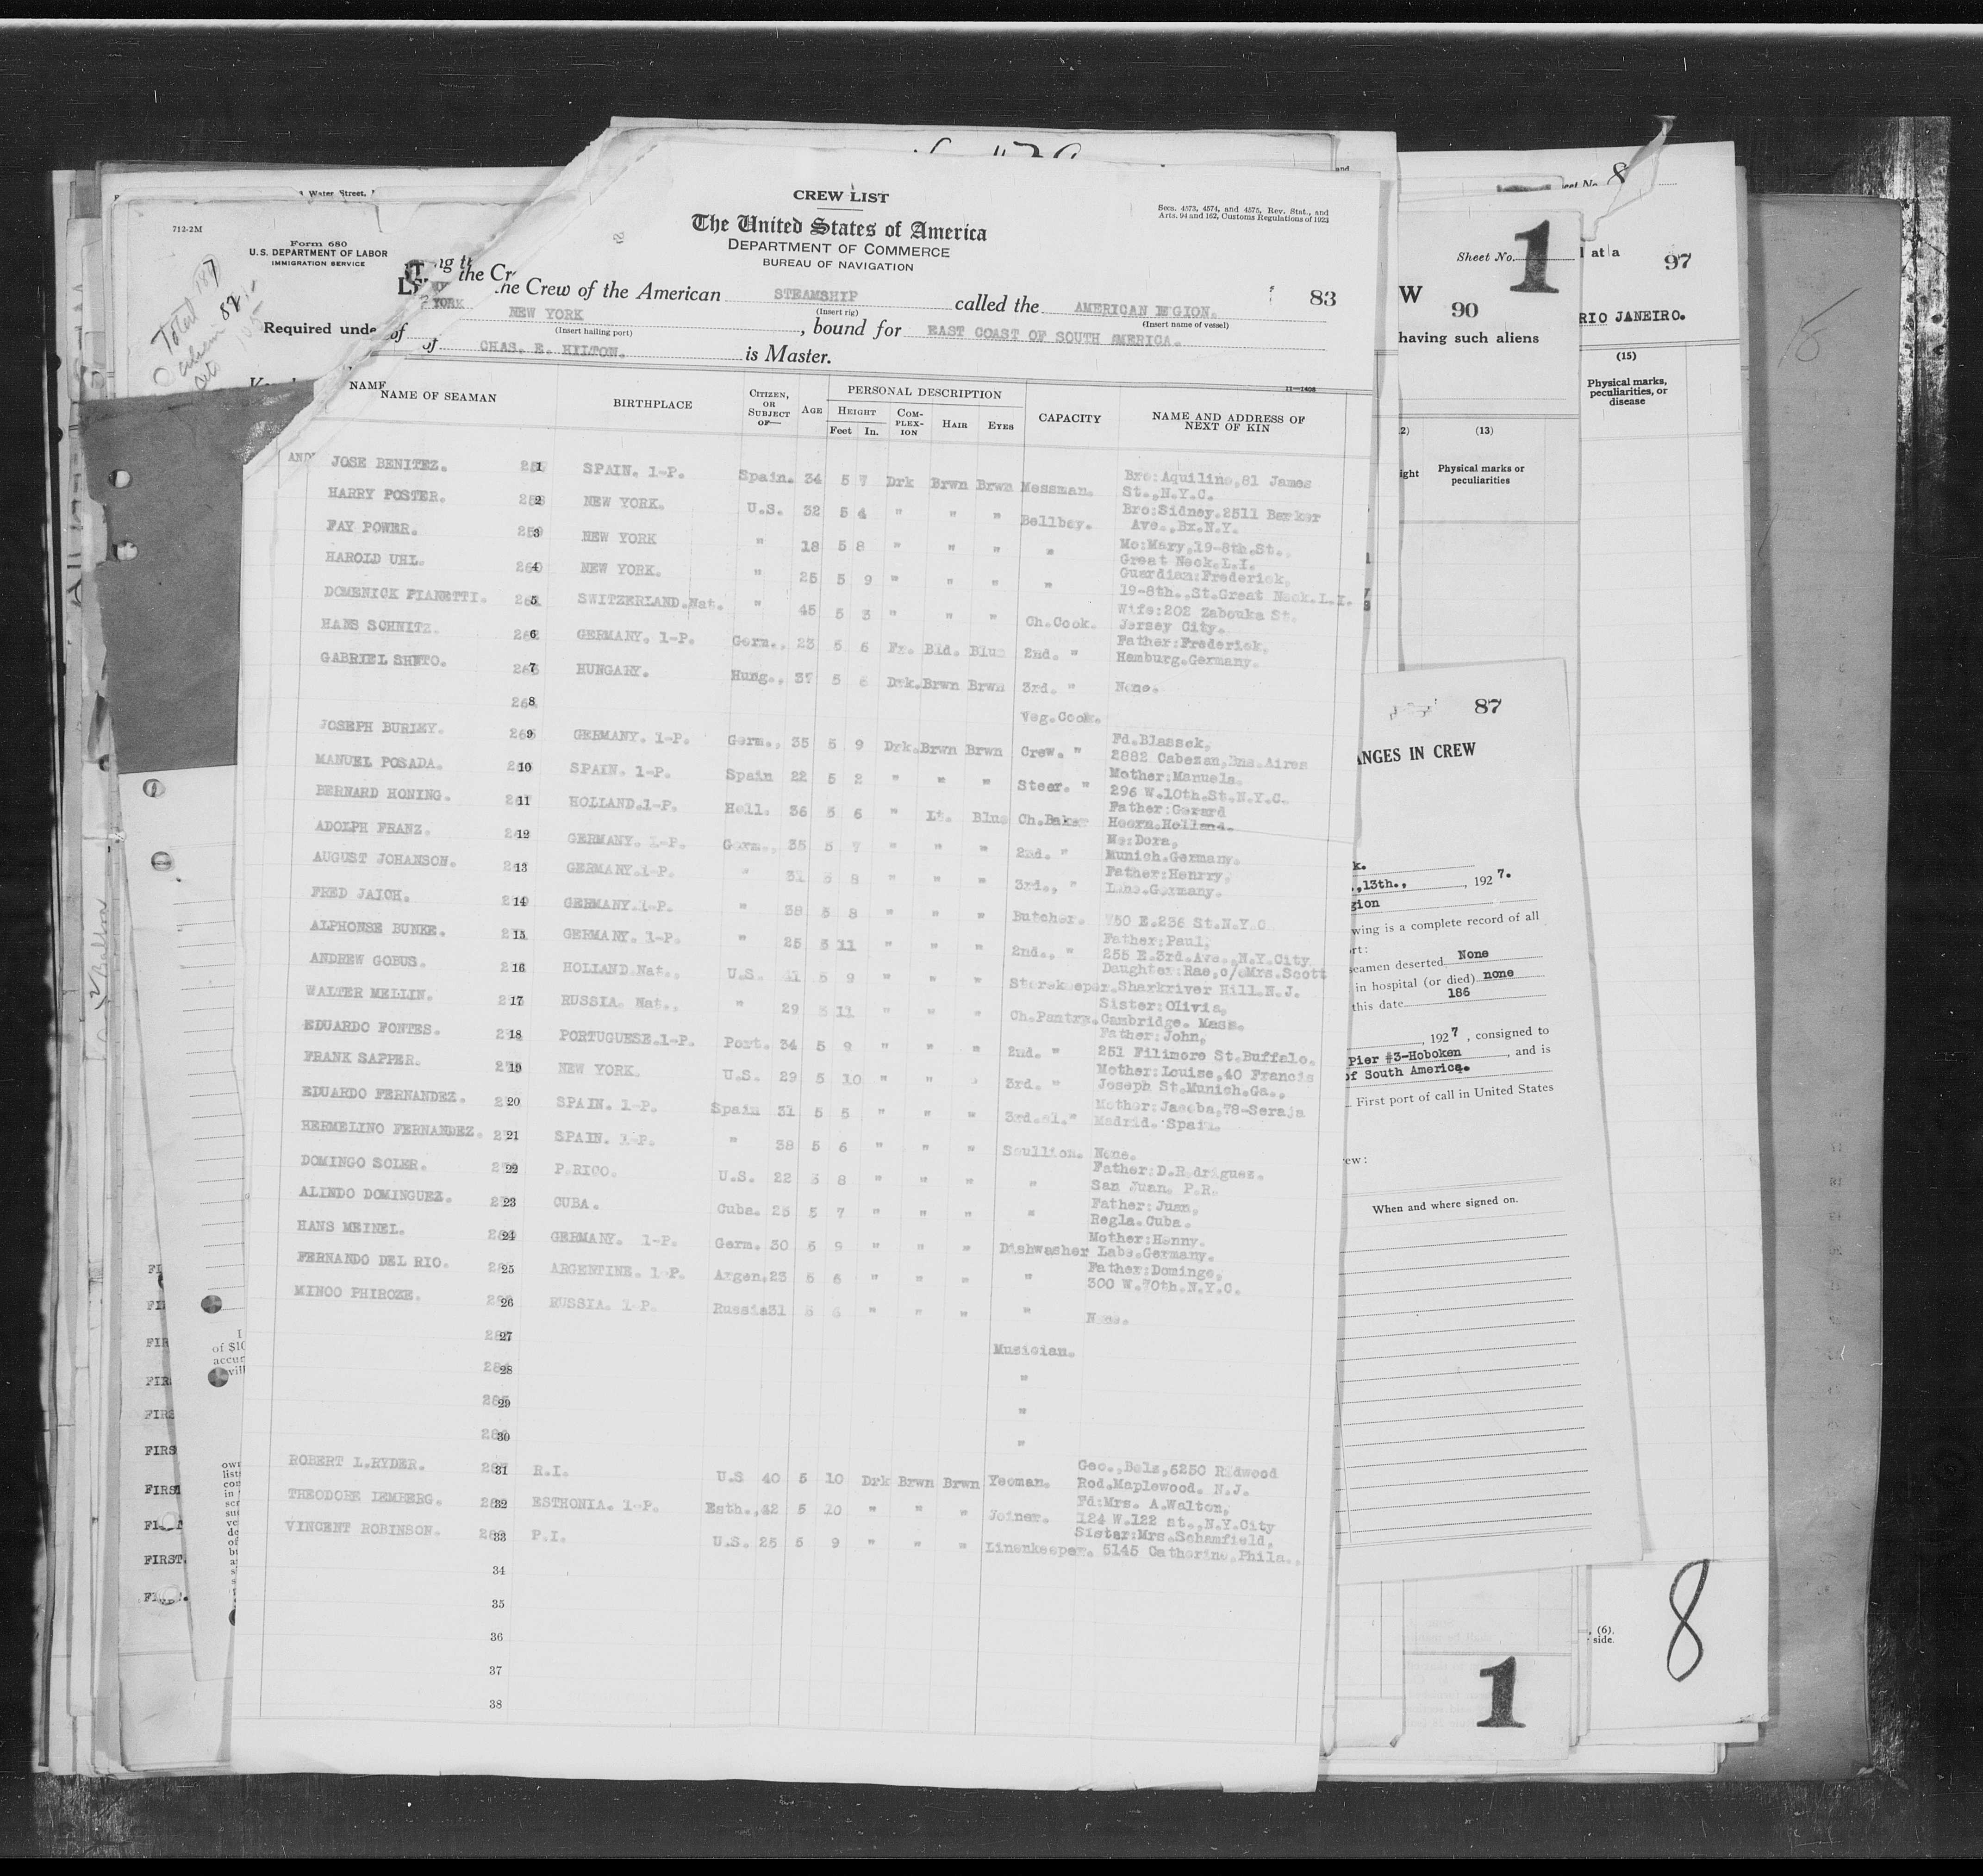 CREW LIST
The United States of America
DEPARTMENT OF COMMERCE
BUREAU OF NAVIGATION
Secs. 4573, 4574, and 4575, Rev. Stat., and
Arts. 94 and 162, Customs Regulations of 1923
83
the Crew of the American STEAMSHIP called the AMERICAN LEGION.
(Insert rig) (Insert name of vessel)
of NEW YORK, bound for EAST COAST OF SOUTH AMERICA.
(Insert hailing port)
of CHAS. E. HILTON. is Master.
11—1408
NAME OF SEAMAN BIRTHPLACE CITIZEN, OR SUBJECT OF— AGE PERSONAL DESCRIPTION CAPACITY NAME AND ADDRESS OF NEXT OF KIN
HEIGHT COMPLEXION HAIR EYES
Feet In.
JOSE BENITEZ. 1 SPAIN. 1-P. Spain. 34 5 7 Drk Brwn Brwn Messman. Bro:Aquilino,81 James
St.,N.Y.C.
HARRY POSTER. 2 NEW YORK. U.S. 32 5 4 " " " Bellboy. Bro:Sidney.2511 Barker
Ave.,Bx.N.Y.
FAY POWER. 3 NEW YORK " 18 5 8 " " " " Mo:Mary,19-8th.St.,
Great Neck.L.I.
HAROLD UHL. 4 NEW YORK. " 25 5 9 " " " " Guardian:Frederick,
19-8th.,St.Great Neck.L.I.
DOMENICK PIANETTI. 5 SWITZERLAND.Nat. " 45 5 3 " " " Ch.Cook. Wife:202 Zabouka St.
Jersey City.
HANS SCHNITZ. 6 GERMANY. 1-P. Germ., 23 5 6 Fr. Bld. Blue 2nd. " Father:Frederick,
Hamburg.Germany.
GABRIEL SHNTO. 7 HUNGARY. Hung., 37 5 6 Drk.Brwn Brwn 3rd. " None.
8 Veg.Cook.
JOSEPH BURLEY. 9 GERMANY. 1-P. Germ., 35 5 9 Drk.Brwn Brwn Crew. " Fd.Blassek,
2882 Cabezan,Bns.Aires
MANUEL POSADA. 10 SPAIN. 1-P. Spain 22 5 2 " " " Steer. " Mother:Manuela.
296 W.10th.St.N.Y.C.
BERNARD HONING. 11 HOLLAND.1-P. Holl. 36 5 6 " Lt. Blue Ch.Baker Father:Gerard
Hoorn.Holland.
ADOLPH FRANZ. 12 GERMANY. 1-P. Germ., 35 5 7 " " " 2nd. " Mo:Dora,
Munich.Germany.
AUGUST JOHANSON. 13 GERMANY.1-P. " 31 5 8 " " " 3rd., " Father:Henrry,
Labs.Germany.
FRED JAICH. 14 GERMANY.1-P. " 38 5 8 " " " Butcher. 750 E.236 St.N.Y.C
ALPHONSE BUNKE. 15 GERMANY. 1-P. " 25 5 11 " " " 2nd., " Father:Paul,
255 E.3rd.Ave.,N.Y.City
ANDREW GOBUS. 16 HOLLAND.Nat., U.S. 41 5 9 " " " Storekeeper. Daughter:Rae,c/oMrs.Scott
Sharkriver Hill.N.J.
WALTER MELLIN. 17 RUSSIA. Nat., " 29 5 11 " " " Ch.Pantry. Sister:Olivia,
Cambridge. Mass.
EDUARDO FONTES. 18 PORTUGUESE.1-P. Port. 34 5 9 " " " 2nd. " Father:John,
251 Filimore St.Buffalo.
FRANK SAPPER. 19 NEW YORK. U.S. 29 5 10 " " " 3rd. " Mother:Louise,40 Francis
Joseph St.Munich.Ga.,
EDUARDO FERNANDEZ. 20 SPAIN. 1-P. Spain 31 5 5 " " " 3rd.cl." Mother:Jacoba,78-Seraja
Madrid. Spain.
HERMELINO FERNANDEZ. 21 SPAIN. 1-P. " 38 5 6 " " " Scullion. None.
DOMINGO SOLER. 22 P.RICO. U.S. 22 5 8 " " " " Father:D.Rodriguez.
San Juan. P.R.
ALINDO DOMINGUEZ. 23 CUBA. Cuba. 25 5 7 " " " " Father:Juan,
Regla.Cuba.
HANS MEINEL. 24 GERMANY. 1-P. Germ. 30 5 9 " " " Dishwasher Mother:Henny.
Labs.Germany.
FERNANDO DEL RIO. 25 ARGENTINE. 1-P. Argen.23 5 6 " " " " Father:Domingo,
300 W.70th.N.Y.C.
MINOO PHIROZE. 26 RUSSIA. 1-P. Russia31 5 6 " " " " None.
27 Musician.
28 "
29 "
30 "
ROBERT L.RYDER. 31 R.I. U.S 40 5 10 Drk Brwn Brwn Yeoman. Geo.,Belz,5250 Ridwood
Rod.Maplewood. N.J.
THEODORE LEMBERG. 32 ESTHONIA. 1-P. Esth.,42 5 10 " " " Joiner. Fd:Mrs. A.Walton,
124 W.122 st.,N.Y.City
VINCENT ROBINSON. 33 P.I. U.S. 25 5 9 " " " Linenkeeper. Sister:Mrs.Schamfield,
5145 Catherine,Phila.,
34
35
36
37
38
712-2M
Form 680
U.S. DEPARTMENT OF LABOR
IMMIGRATION SERVICE
Total 187
82
Required unde
Water Street,
Sheet No. 1
W
90
having such aliens
(13)
Physical marks or
peculiarities
1
8
at a
97
RIO JANEIRO.
(15)
Physical marks,
peculiarities, or
disease
(6).
side.
8
87
ANGES IN CREW
k.
.,13th., , 1927.
gion
wing is a complete record of all
ort:
seamen deserted None
in hospital (or died) none
this date 186
, 1927, consigned to
Pier #3-Hoboken, and is
of South America.
First port of call in United States
ew:
When and where signed on.